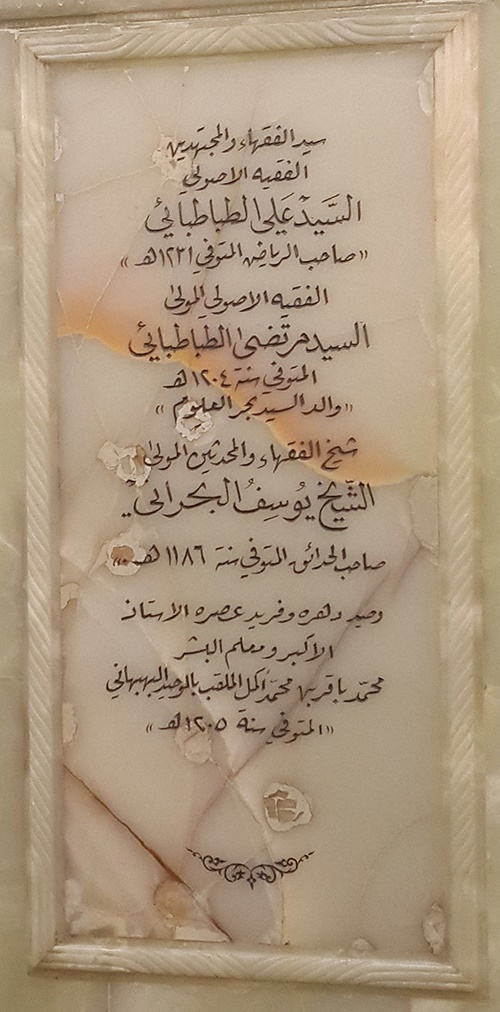 سيد الفقهاء والمجتهدين
الفقيه الاصولي
السَّيِّدْ عَلي الطباطبائي
«صاحب الرياض المتوفي ١٢٣١هـ»
الفقيه الاصولي المولى
السيد مرتضى الطباطبائي
المتوفي سنة ١٢٠٤هـ
«والد السيد بحر العلوم»
شيخ الفقهاء والمحدثين المولى
الشَّيخ يُوسِفُ البحراني
صاحب الحدائق المتوفي سنة ١١٨٦ هـ»
وحيد دهره وفريد عصره الاستاذ
الاكبر ومعلم البشر
محمّد باقر بن محمّد اكمل الملقب بالوحيد البهبهاني
«المتوفي سنة ١٢٠٥هـ»